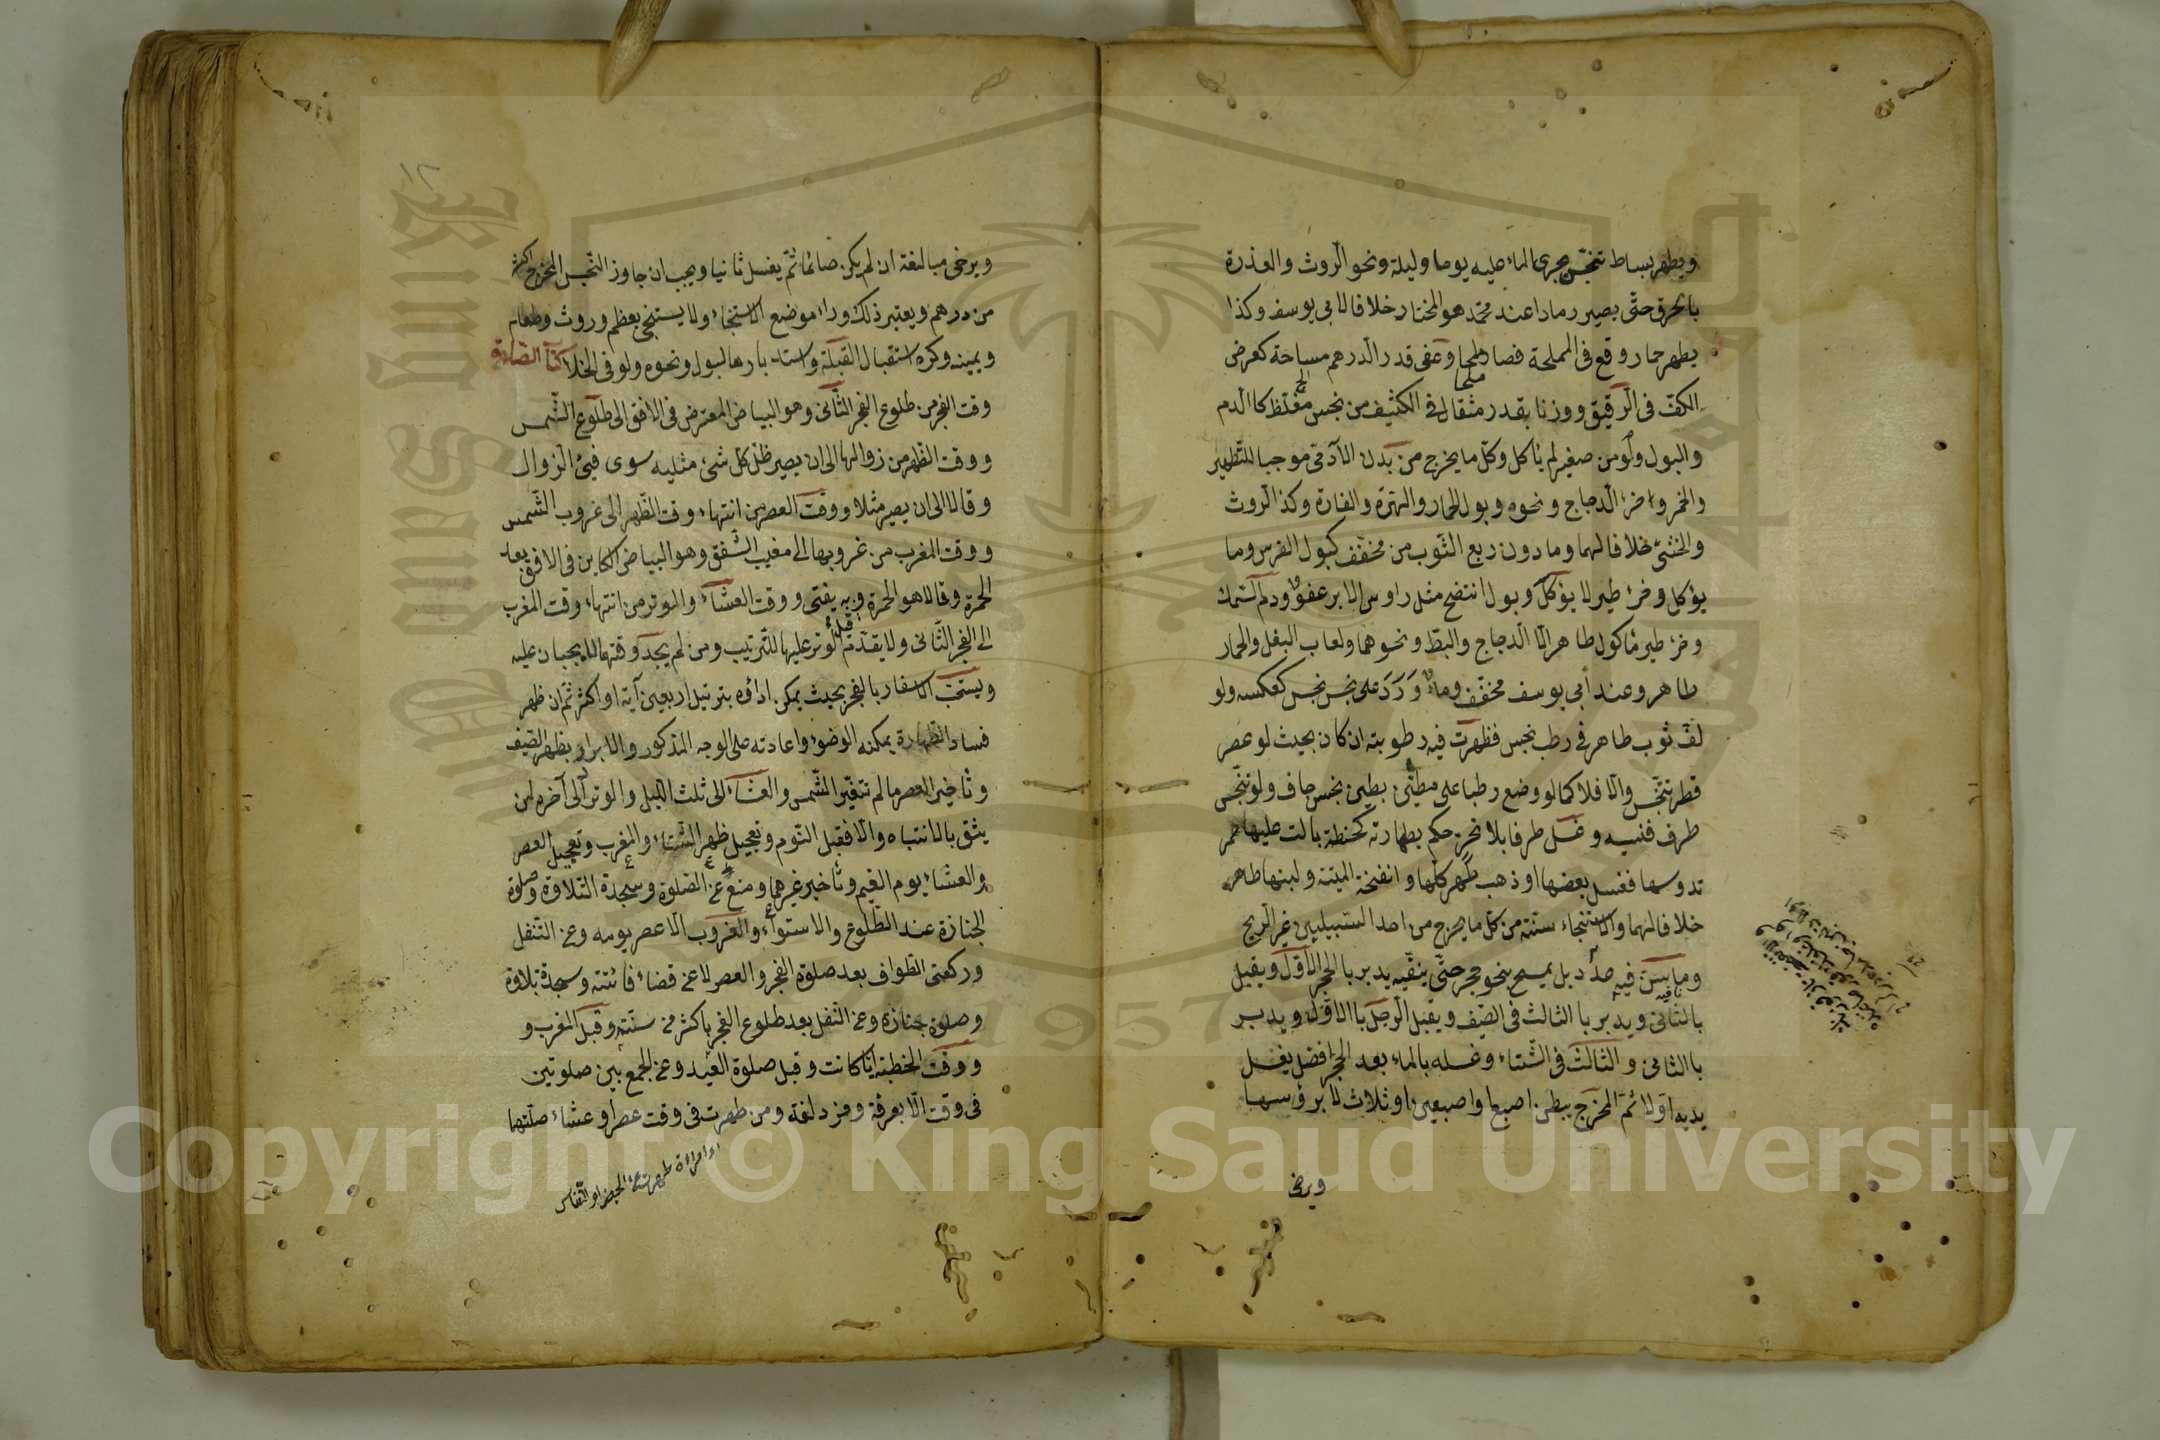 ويطهر بساط تنجس بجرى الماء عليه يوما وليلة ونحو الروث والعذرة
بالحرق حتى يصير رمادا عند محمد هو المختار خلافا لابي يوسف وكذا
يطهر حمار وقع في المملحة فصار ملحا وعفى قدر الدرهم مساحة كعرض
ملحا
الكف في الرقيق ووزنا بقدر مثقال في الكثيف من نجس مغلظ كالدم
والبول ولو من صغير لم يأكل وكل ما يخرج من بدن الآدمى موجبا للتطهير
والخمر وخرء الدجاج ونحوه وبول الحمار والهرة والفارة وكذا الروث
والخثى خلافا لهما وما دون ربع الثوب من مخفف كبول الفرس وما
يؤكل وخرء طير لا يؤكل وبول انتضح مثل رأوس الابر عفو ودم السمك
وخرء طير مأكول طاهر الا الدجاج والبط ونحوهما ولعاب البغل والحمار
طاهر وعند أبي يوسف مخفف وماء ورد على نجس نجس كعكسه ولو
لف ثوب طاهر في رطب نجس فظهرت فيه رطوبته ان كان بحيث لو عصر
قطر تنجس والا فلا كما لو وضع رطبا على مطين بطين نجس جاف ولو تنجس
طرف فنسيه وغسل طرفا بلا تحر حكم بطهارته كحنطة بالت عليها حمر
تدوسها فغسل بعضها او ذهب طهر كلها وانفحة الميتة ولبنها طاهر
خلافا لهما والاستنجاء سنة من كل ما يخرج من احد السبيلين غير الريح
وما سن فيه عدد بل يمسح بنحو حجر حتى ينقيه يدبر بالحجر الاول ويقبل
بالثاني ويدبر با الثالث في الصيف ويقبل الرجل با الاول ويدبر
با الثاني والثالث في الشتاء وغسله بالماء بعد الحجر افضل يغسل
يديه اولا ثم المخرج ببطن اصبع او اصبعين او ثلاث لا برؤسها
ويرخى
١٢
ويرخى مبالغة ان لم يكن صائما ثم يغسل ثانيا ويجب ان جاوز النجس المخرج اكثر
من درهم ويعتبر ذلك وراء موضع الاستنجاء ولا يستنجى بعظم وروث وطعام
ويمينه وكره استقبال القبلة واستدبارها لبول ونحوه ولو في الخلا كتاب الصلوة
وقت الفجر من طلوع الفجر الثاني وهو البياض المعترض في الافق الى طلوع الشمس
ووقت الظهر من زوالها الى ان يصير ظل كل شئ مثليه سوى فيئ الزوال
وقالا الى ان يصير مثلا ووقت العصر من انتهاء وقت الظهر الى غروب الشمس
ووقت المغرب من غروبها الى مغيب الشفق وهو البياض الكاين في الافق بعد
الحمرة وقالا هو الحمرة وبه يفتى ووقت العشاء والوتر من انتهاء وقت المغرب
الى الفجر الثاني ولا يقدم الوتر عليها للترتيب ومن لم يجد وقتهما لا يجبان عليه
ويستحب الاسفار بالفجر بحيث يمكن اداؤه بترتيل اربعين آية او اكثر ثم ان ظهر
فساد الطهارة يمكنه الوضوء واعادته على الوجه المذكور والابراد بظهر الصيف
وتأخير العصر ما لم تتغير الشمس والعشاء الى ثلث الليل والوتر الى آخره لمن
يثق بالانتباه والا فقبل النوم وتعجيل ظهر الشتاء والمغرب وتعجيل العصر
والعشاء يوم الغيم وتأخير غيرهما ومنع عن الصلوة وسجدة التلاوة وصلوة
الجنازة عند الطلوع والاستواء والغروب الا عصر يومه وعن التنفل
وركعتى الطواف بعد صلوة الفجر والعصر لا عن قضاء فائتة وسجدة تلاوة
وصلوة جنازة وعن النفل بعد طلوع الفجر باكثر من سنته وقبل المغرب و
ووقت الخطبة ايا كانت وقبل صلوة العيد وعن الجمع بين صلوتين
في وقت الا بعرفة ومزدلفة ومن طهرت في وقت عصر او عشاء صلتها
اى امراة طهرت عن الحيض او النفاس
1957
Copyright © King Saud University